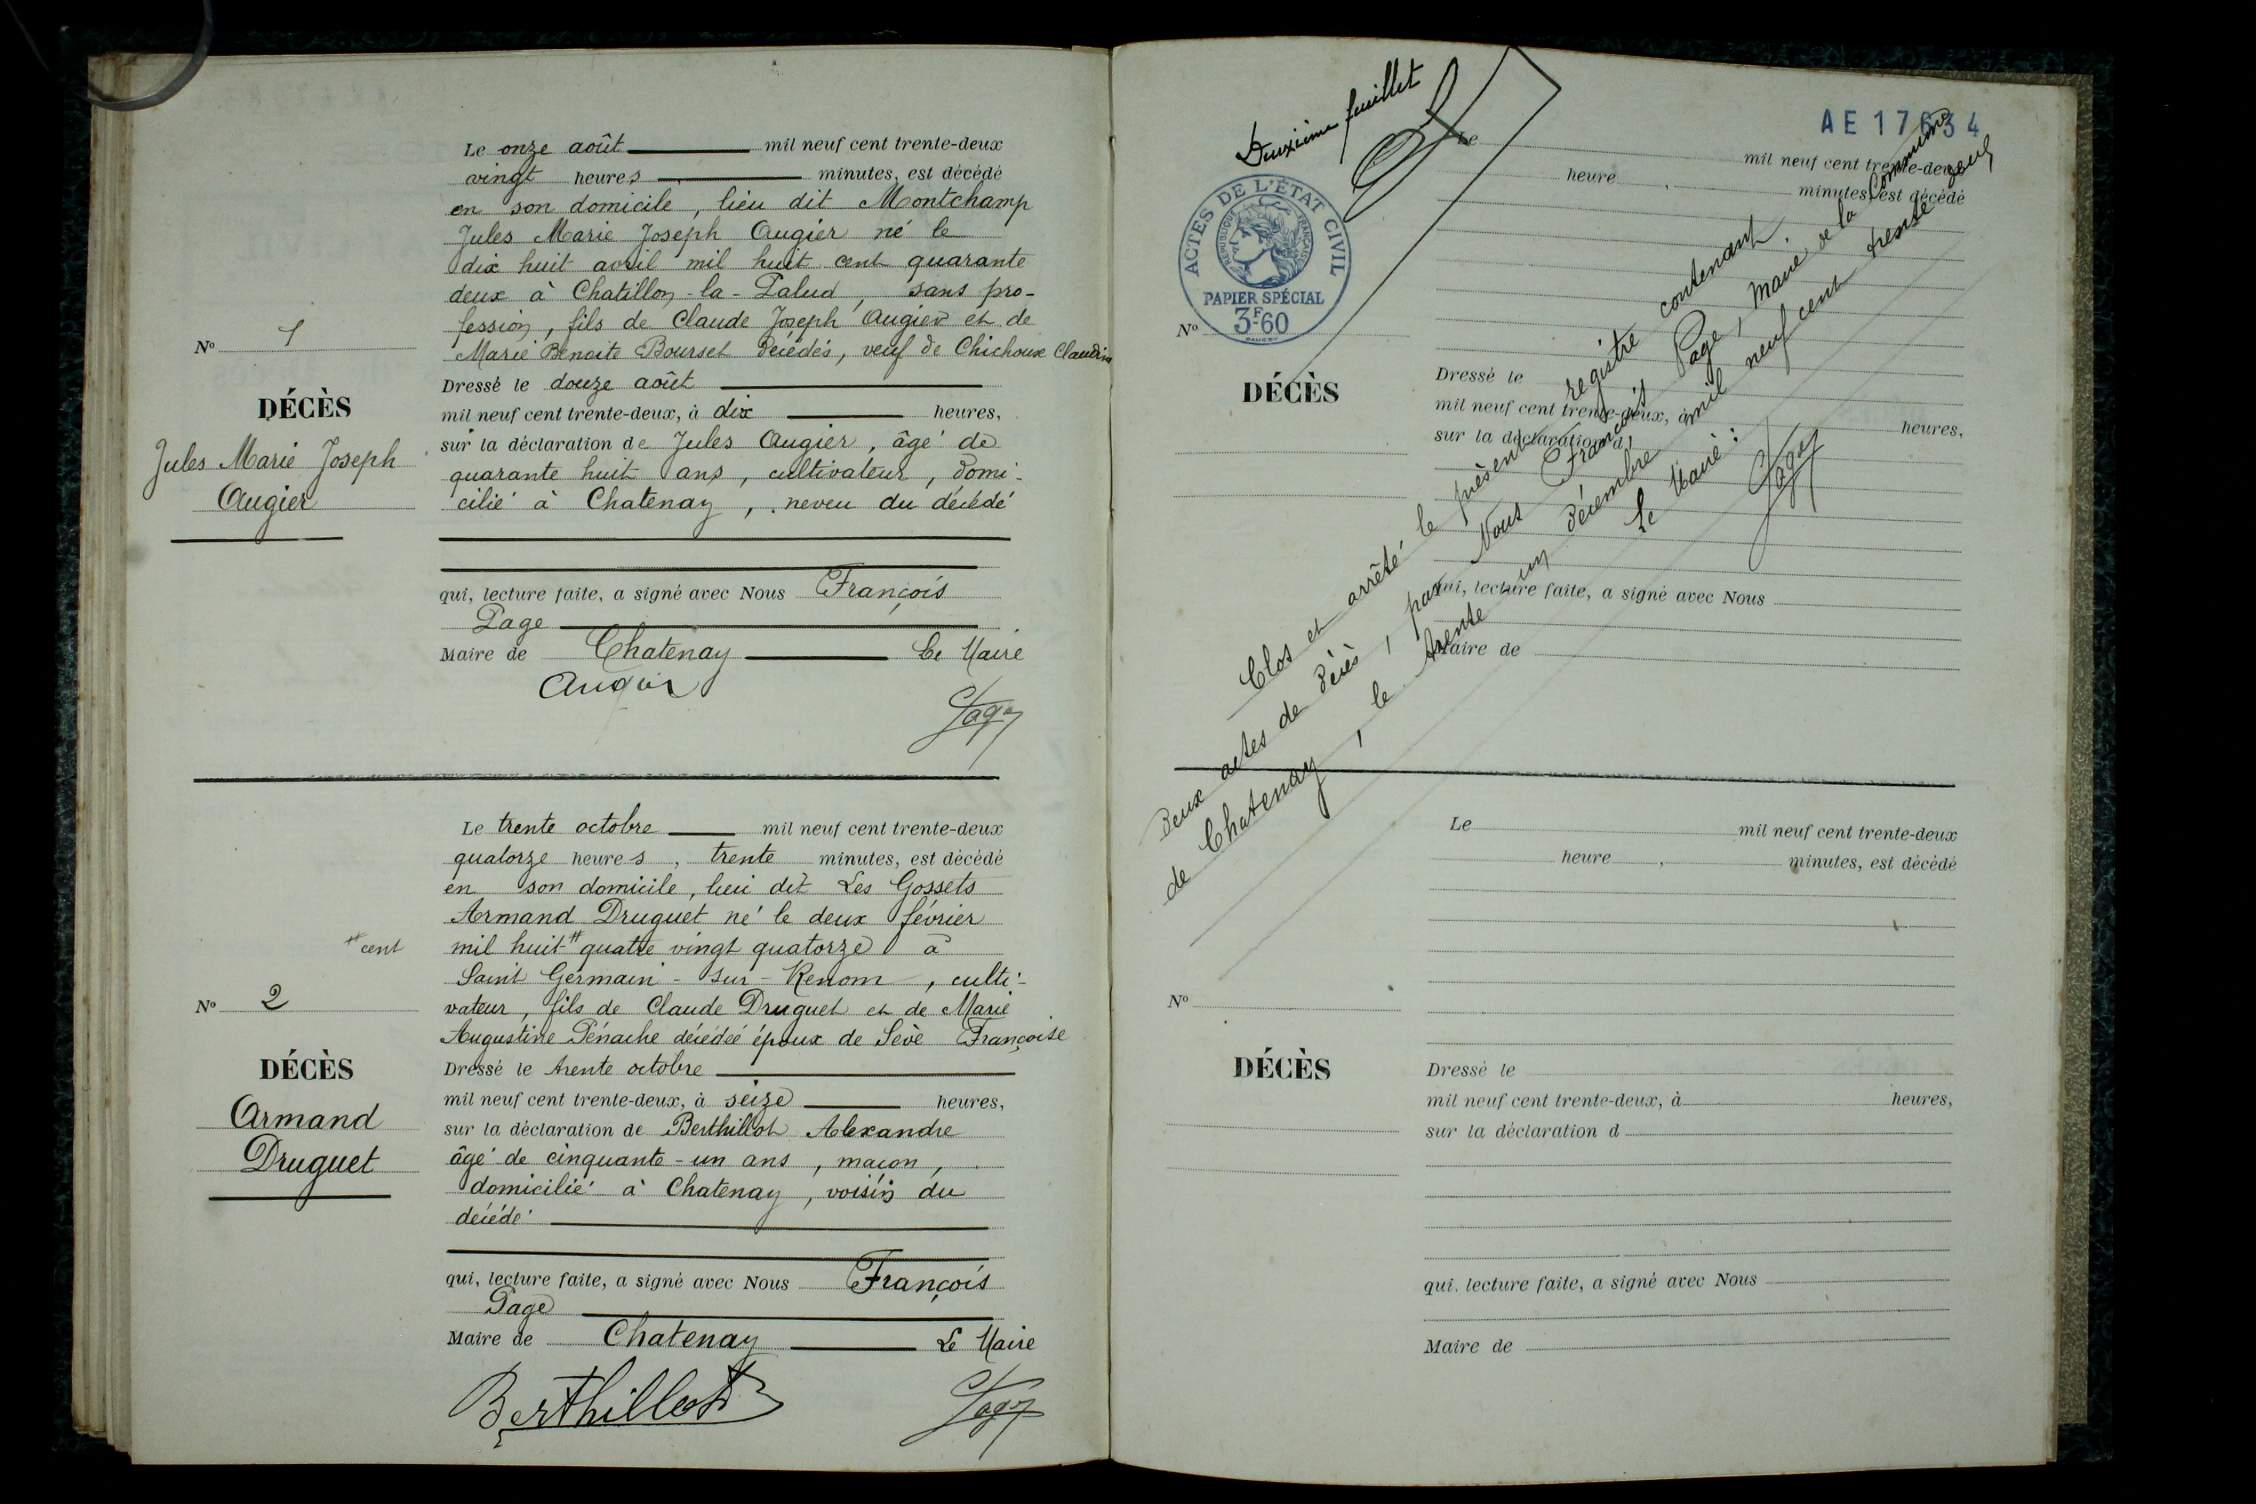 Le onze août mil neuf cent trente-deux
vingt heures minutes, est décédé
en son domicile, lieu dit Montchamp
Jules Marie Joseph Augier né le
dix huit avril mil huit cent quarante
deux à Chatillon-la-Palud, sans pro-
fession, fils de Claude Joseph Augier et de
Marie Benoite Bourset décédés, veuf de Chichoux Claudine
Nº 1
DÉCÈS
Jules Marie Joseph
Augier
Dressé le douze août
mil neuf cent trente-deux, à dix heures,
sur la déclaration de Jules Augier, âgé de
quarante huit ans, cultivateur, domi-
cilié à Chatenay, neveu du décédé
qui, lecture faite, a signé avec Nous François
Page
Maire de Chatenay Le Maire
Augier
Page
Le trente octobre mil neuf cent trente-deux
quatorze heures, trente minutes, est décédé
en son domicile, lieu dit Les Gossets
Armand Druguet né le deux février
mil huit # quatre vingt quatorze à
# cent
Saint Germain-sur-Renom, culti-
vateur, fils de Claude Druguet et de Marie
Augustine Pénache décédée époux de Sève Françoise
Nº 2
DÉCÈS
Armand
Druguet
Dressé le trente octobre
mil neuf cent trente-deux, à seize heures,
sur la déclaration de Berthillot Alexandre
âgé de cinquante-un ans, maçon,
domicilié à Chatenay, voisin du
décédé
qui, lecture faite, a signé avec Nous François
Page
Maire de Chatenay Le Maire
Berthillot
Page
Deuxième feuillet
AE 17634
ACTES DE L'ÉTAT CIVIL
RÉPUBLIQUE FRANÇAISE
PAPIER SPÉCIAL
3F60
Le mil neuf cent trente-deux
heure , minutes, est décédé
Nº
DÉCÈS
Dressé le
mil neuf cent trente-deux, à heures,
sur la déclaration d
qui, lecture faite, a signé avec Nous
Maire de
Clos et arrêté le présent registre contenant
deux actes de décès, par Nous François Page, Maire de la Commune
de Chatenay, le trente un décembre mil neuf cent trente deux
Le Maire :
Page
Le mil neuf cent trente-deux
heure , minutes, est décédé
Nº
DÉCÈS
Dressé le
mil neuf cent trente-deux, à heures,
sur la déclaration d
qui, lecture faite, a signé avec Nous
Maire de